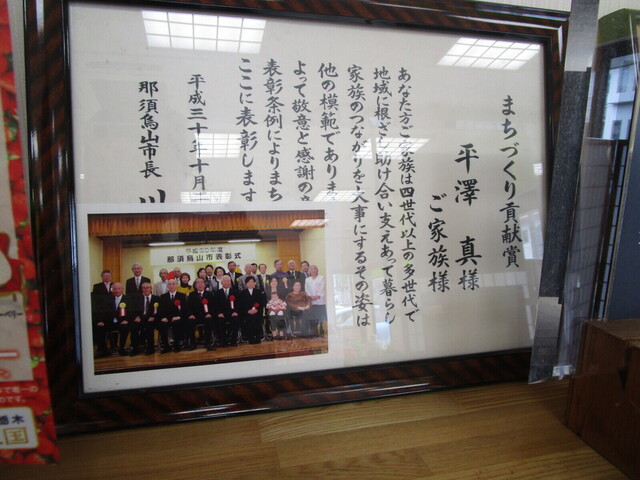 まちづくり貢献賞
平澤 真様
ご家族様
あなた方ご家族は四世代以上の多世代で
地域に根ざし助け合い支えあって暮らし
家族のつながりを大事にするその姿は
他の模範でありま
よって敬意と感謝の
表彰条例によりまち
ここに表彰します
平成三十年十月
那須烏山市長
平成30年度
那須烏山市表彰式
唯一の
栃木
国